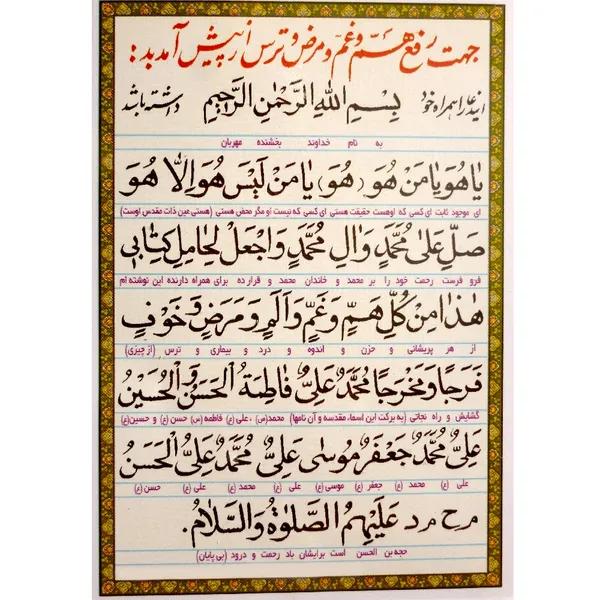 جهت رفع هَمّ و غمّ و مرض و ترس از پیش آمد بد:
این دعا را همراه خود بِسْمِ اللهِ الرَّحْمٰنِ الرَّحِیمِ داشته باشد
به نام خداوند بخشنده مهربان
یٰا هُوَ یٰا مَنْ هُوَ (هُوَ) یٰا مَنْ لَیْسَ هُوَ اِلّٰا هُوَ
ای موجود ثابت ای کسی که اوهست حقیقت هستی ای کسی که نیست او مگر محض هستی (هستی عین ذات مقدس اوست)
صَلِّ عَلیٰ مُحَمَّدٍ وَاٰلِ مُحَمَّدٍ وَاجْعَلْ لِحٰامِلِ کِتٰابی
فرو فرست رحمت خود را بر محمد و خاندان محمد و قرار ده برای همراه دارنده این نوشته ام
هٰذٰا مِنْ کُلِّ هَمٍّ وَغَمٍّ وَاَلَمٍ وَمَرَضٍ وَخَوْفٍ
از هر پریشانی و حزن و اندوه و درد و بیماری و ترس (از چیزی)
فَرَجًا وَمَخْرَجًا مُحَمَّدٌ عَلِیٌّ فٰاطِمَةُ الْحَسَنُ وَالْحُسَیْنُ
گشایش و راه نجاتی (به برکت این اسماء مقدسه و آن نامها) محمد(ص) ، علی(ع) فاطمه(س) حسن(ع) و حسین(ع)
عَلِیٌّ مُحَمَّدٌ جَعْفَرٌ مُوسیٰ عَلِیٌّ مُحَمَّدٌ عَلِیٌّ الْحَسَنُ
علی (ع) محمد (ع) جعفر (ع) موسی (ع) علی (ع) محمد (ع) علی (ع) حسن (ع)
م ح م د عَلَیْهِمُ الصَّلوٰةُ وَالسَّلٰامُ.
حجه بن الحسن است برایشان باد رحمت و درود (بی پایان)